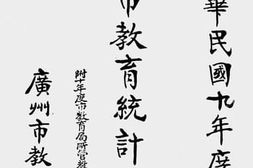 華民國九年度
市教育統計
附十年度市教育局所管教
廣州市教